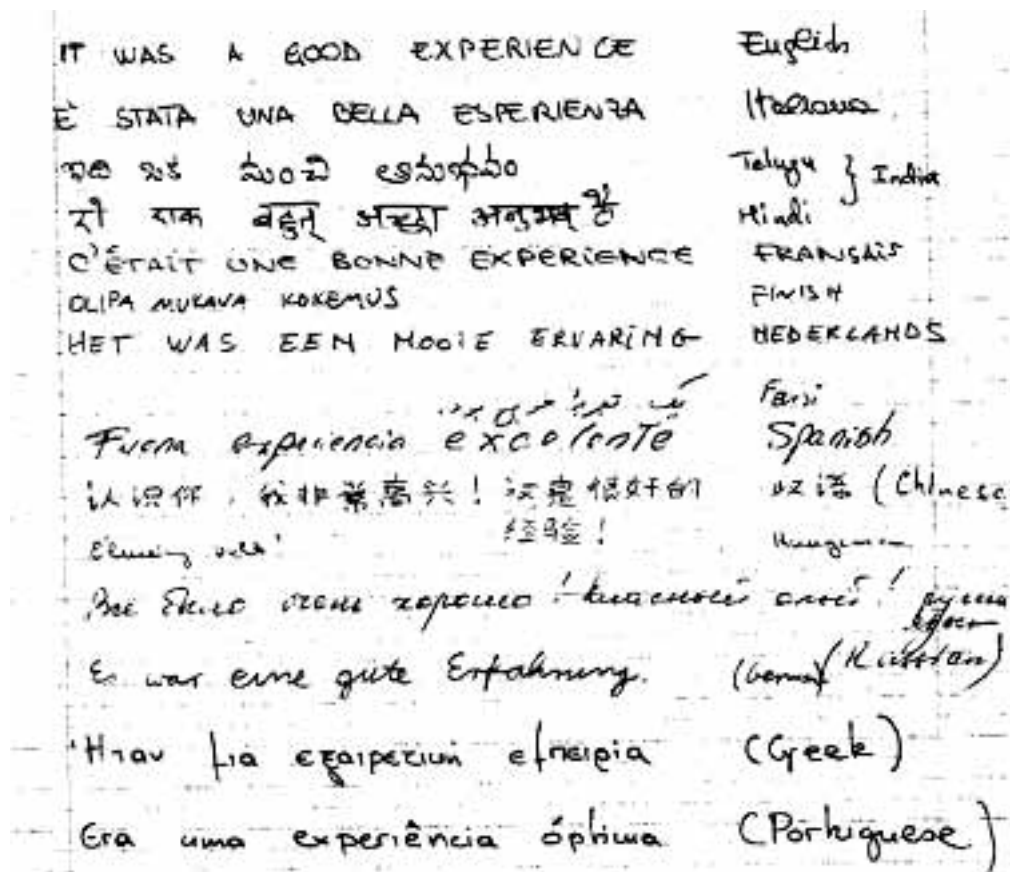 IT WAS A GOOD EXPERIENCE English
E' STATA UNA BELLA ESPERIENZA Italiana
ఇది ఒక మంచి అనుభవం Telugu } India
बहुत अच्छा अनुभव है Hindi
C'ÉTAIT UNE BONNE EXPERIENCE FRANSAIS
OLIPA MUKAVA KOKEMUS FINISH
HET WAS EEN MOOIE ERVARING NEDERLANDS
Farsi
experiencia excelente Spanish
认识你，我非常高兴！这是很好的 汉语 (Chinese
经验！
Élmény volt! Hungarian
Всё было очень хорошо!
Es war eine gute Erfahrung. (German) (Russian)
Ήταν μια εξαιρετική εμπειρία (Greek)
Era uma experiência óptima (Portuguese)